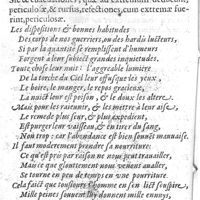 periculosæ, & rursus, refectiones, cum extremæ fue-
rint, periculosæ.
Les dispositions & bonnes habitudes
Des corps de noz guerriers, ou des hardis lucteurs,
Si par la quantité se remplissent d'humeurs
Forgent à leur subiect grandes inquietudes.
Toute chose leur nuit: l'aggreable lumiere
De la torche du Ciel leur offusque les yeux.
Le boire, le manger, le repos gracieux,
La nuict leur est poison, & le doux les altere.
Mais pour les ramener, & les mettre à leur aise,
Le remede plus seur, & plus expedient,
Est purger leur vaisseau, & en tirer du sang,
Non trop: car l'abondance est bien souuẽt mauuaise.
Il faut moderément prendre sa nourriture:
Ce qu'est pris par raison ne nous peut trauailler,
Mais ce que gloutement nous venons aualler,
Se tourne en peu de temps en vne pourriture.
Cela faict que tousiours l'homme en son lict souspire,
Mille peines souuent luy donnent mille ennuy,